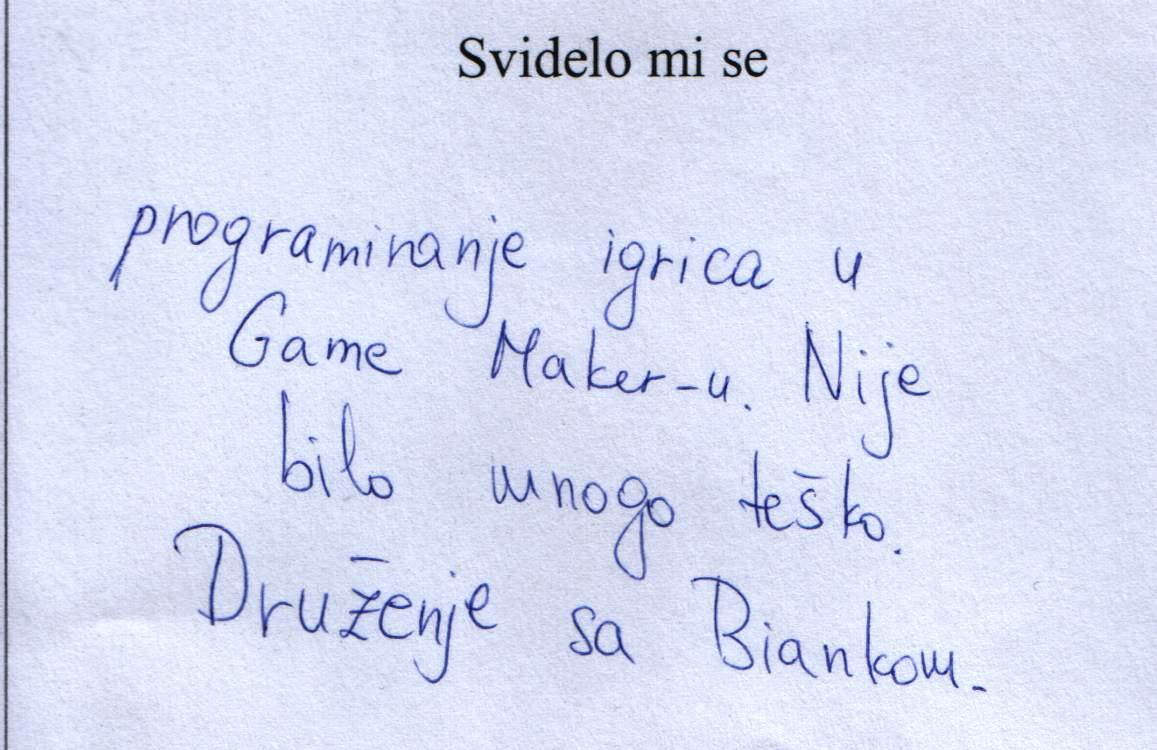 Svidelo mi se
programiranje igrica u
Game Maker-u. Nije
bilo mnogo teško.
Druženje sa Biankom.